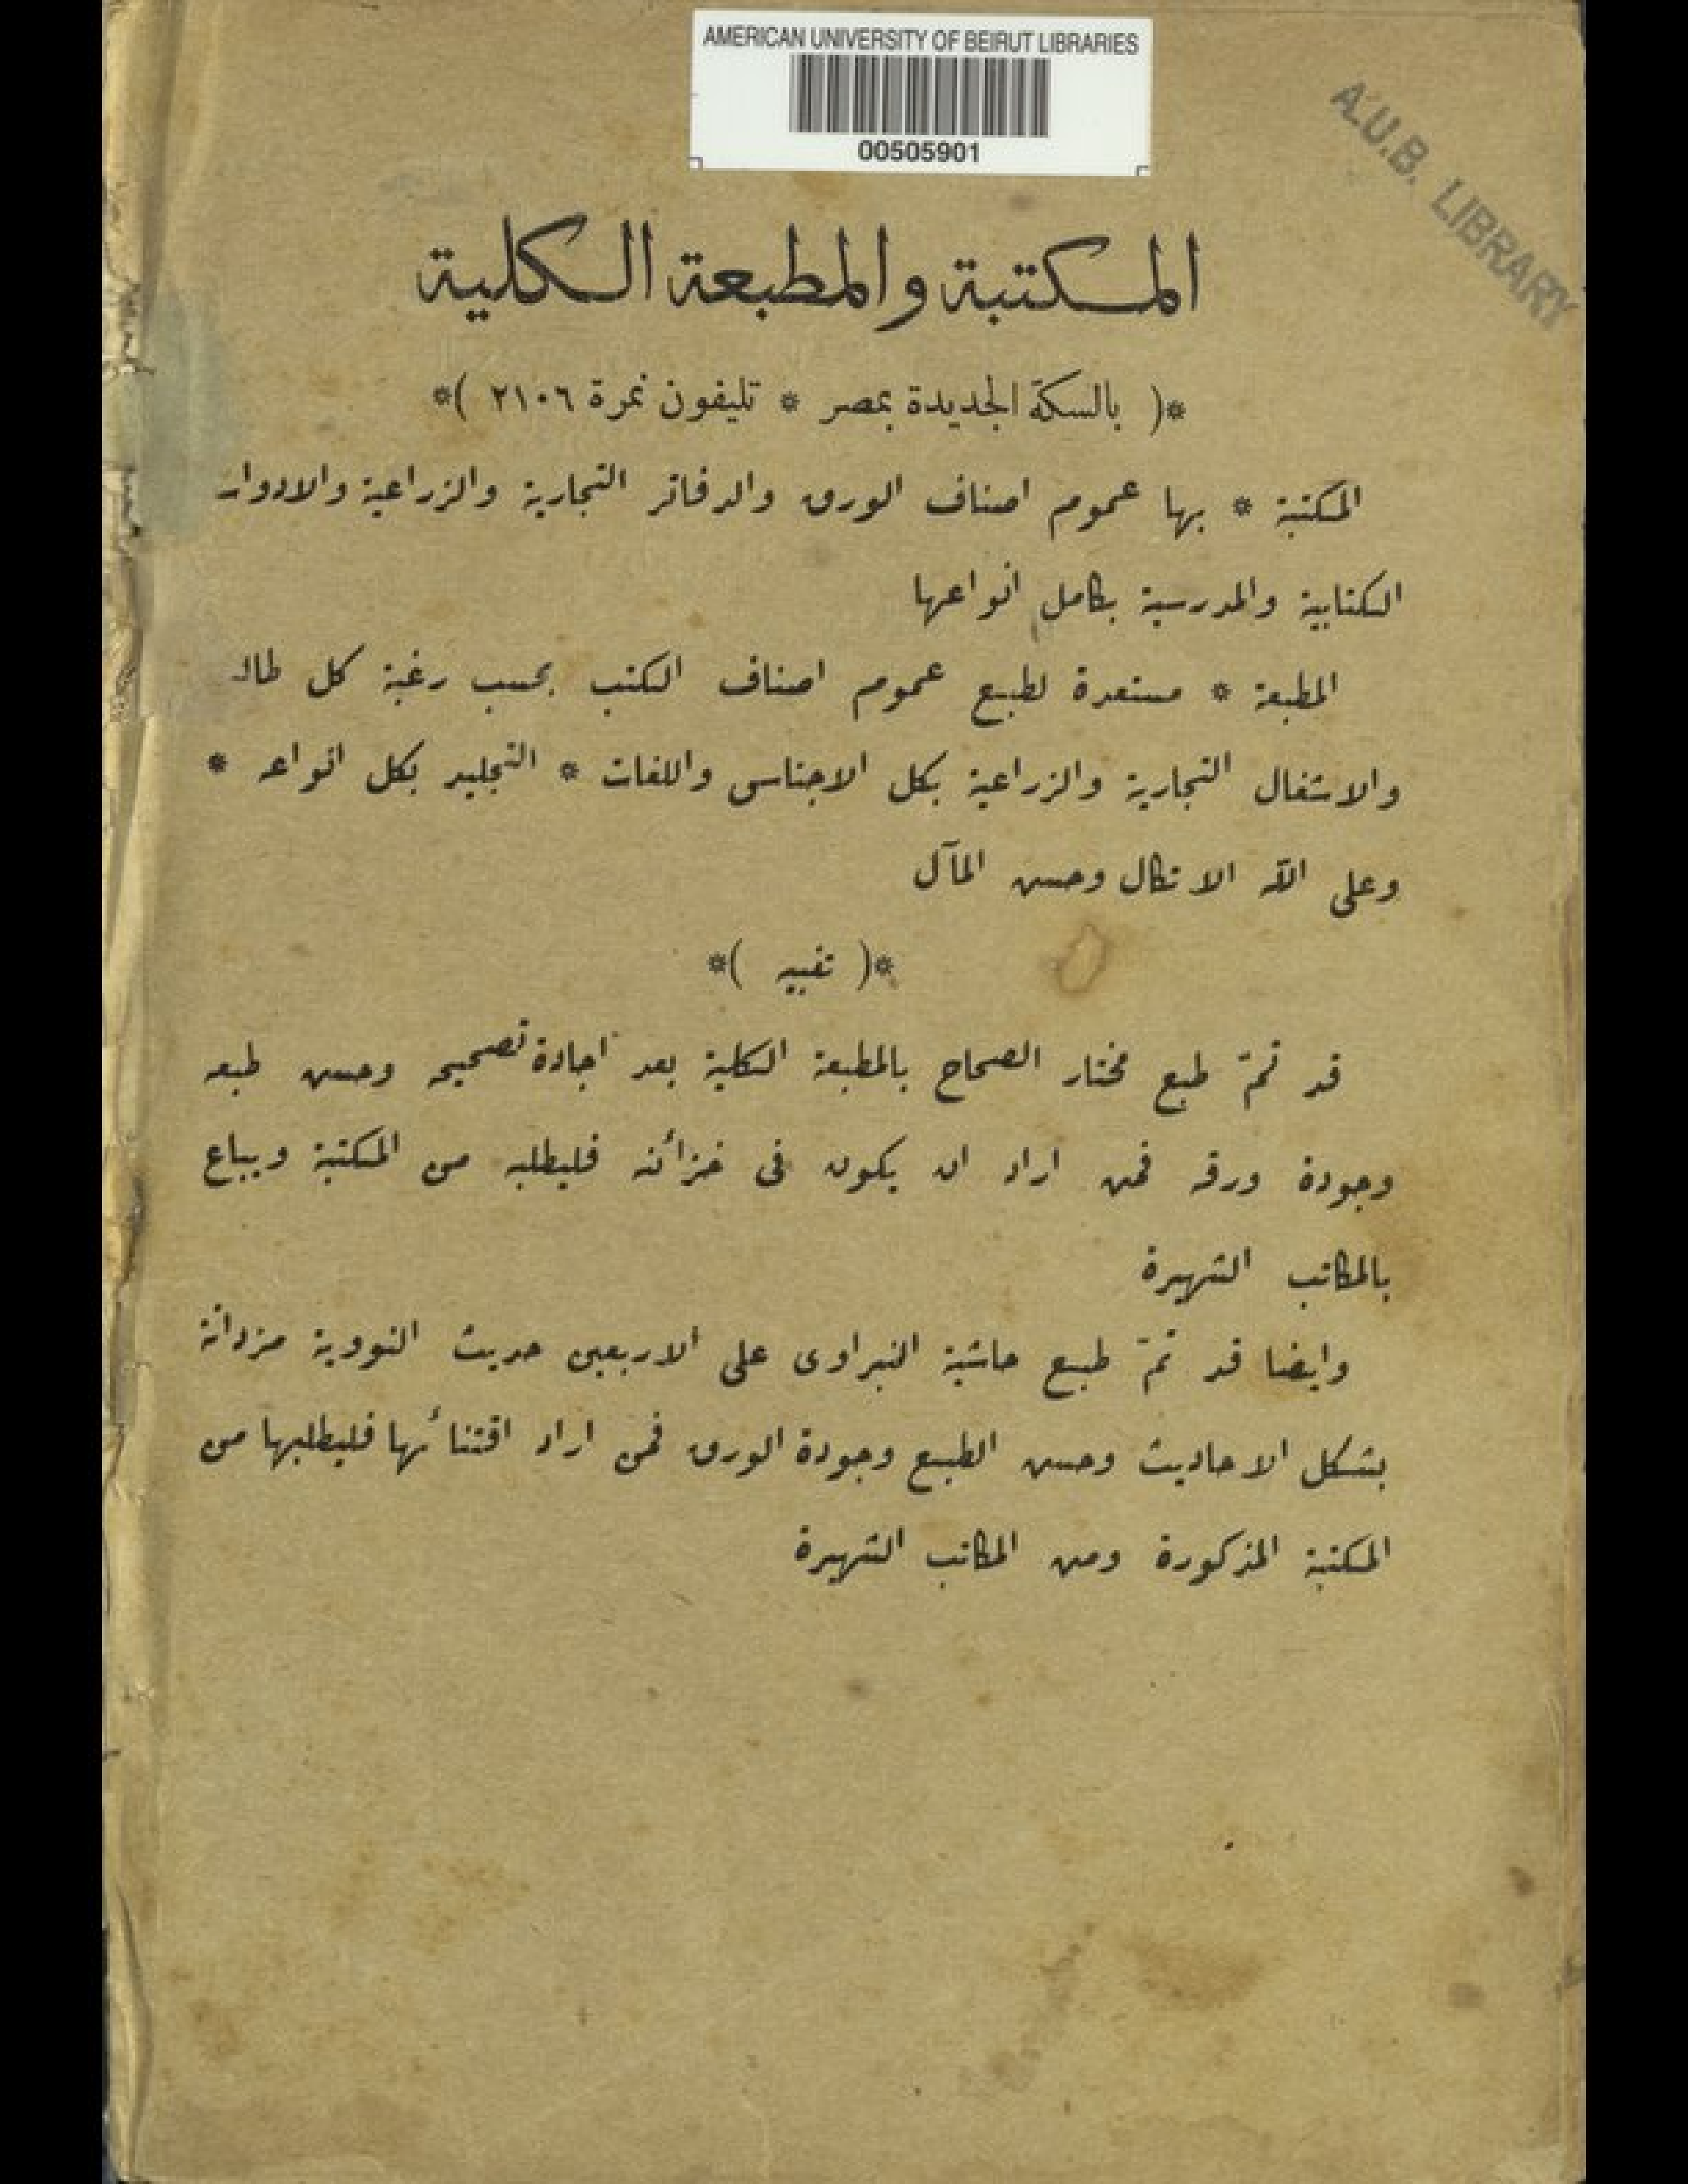 AMERICAN UNIVERSITY OF BEIRUT LIBRARIES
00505901
A.U.B. LIBRARY
المكتبة والمطبعة الكلية
*( بالسكة الجديدة بمصر * تليفون نمرة ٢١٠٦ )*
المكتبة * بها عموم اصناف الورق والدفاتر التجارية والزراعية والادوار
الكتابية والمدرسية بكامل انواعها
المطبعة * مستعدة لطبع عموم اصناف الكتب بحسب رغبة كل طالب
والاشغال التجارية والزراعية بكل الاجناس واللغات * التجليد بكل انواعه *
وعلى الله الاتكال وحسن المآل
*( تنبيه )*
قد تمّ طبع مختار الصحاح بالمطبعة الكلية بعد اجادة تصحيحه وحسن طبعه
وجودة ورقه فمن اراد ان يكون فى خزائنه فليطلبه من المكتبة ويباع
بالمكاتب الشهيرة
وايضا قد تمّ طبع حاشية النبراوى على الاربعين حديث النووية مزدانة
بشكل الاحاديث وحسن الطبع وجودة الورق فمن اراد اقتنائها فليطلبها من
المكتبة المذكورة ومن المكاتب الشهيرة